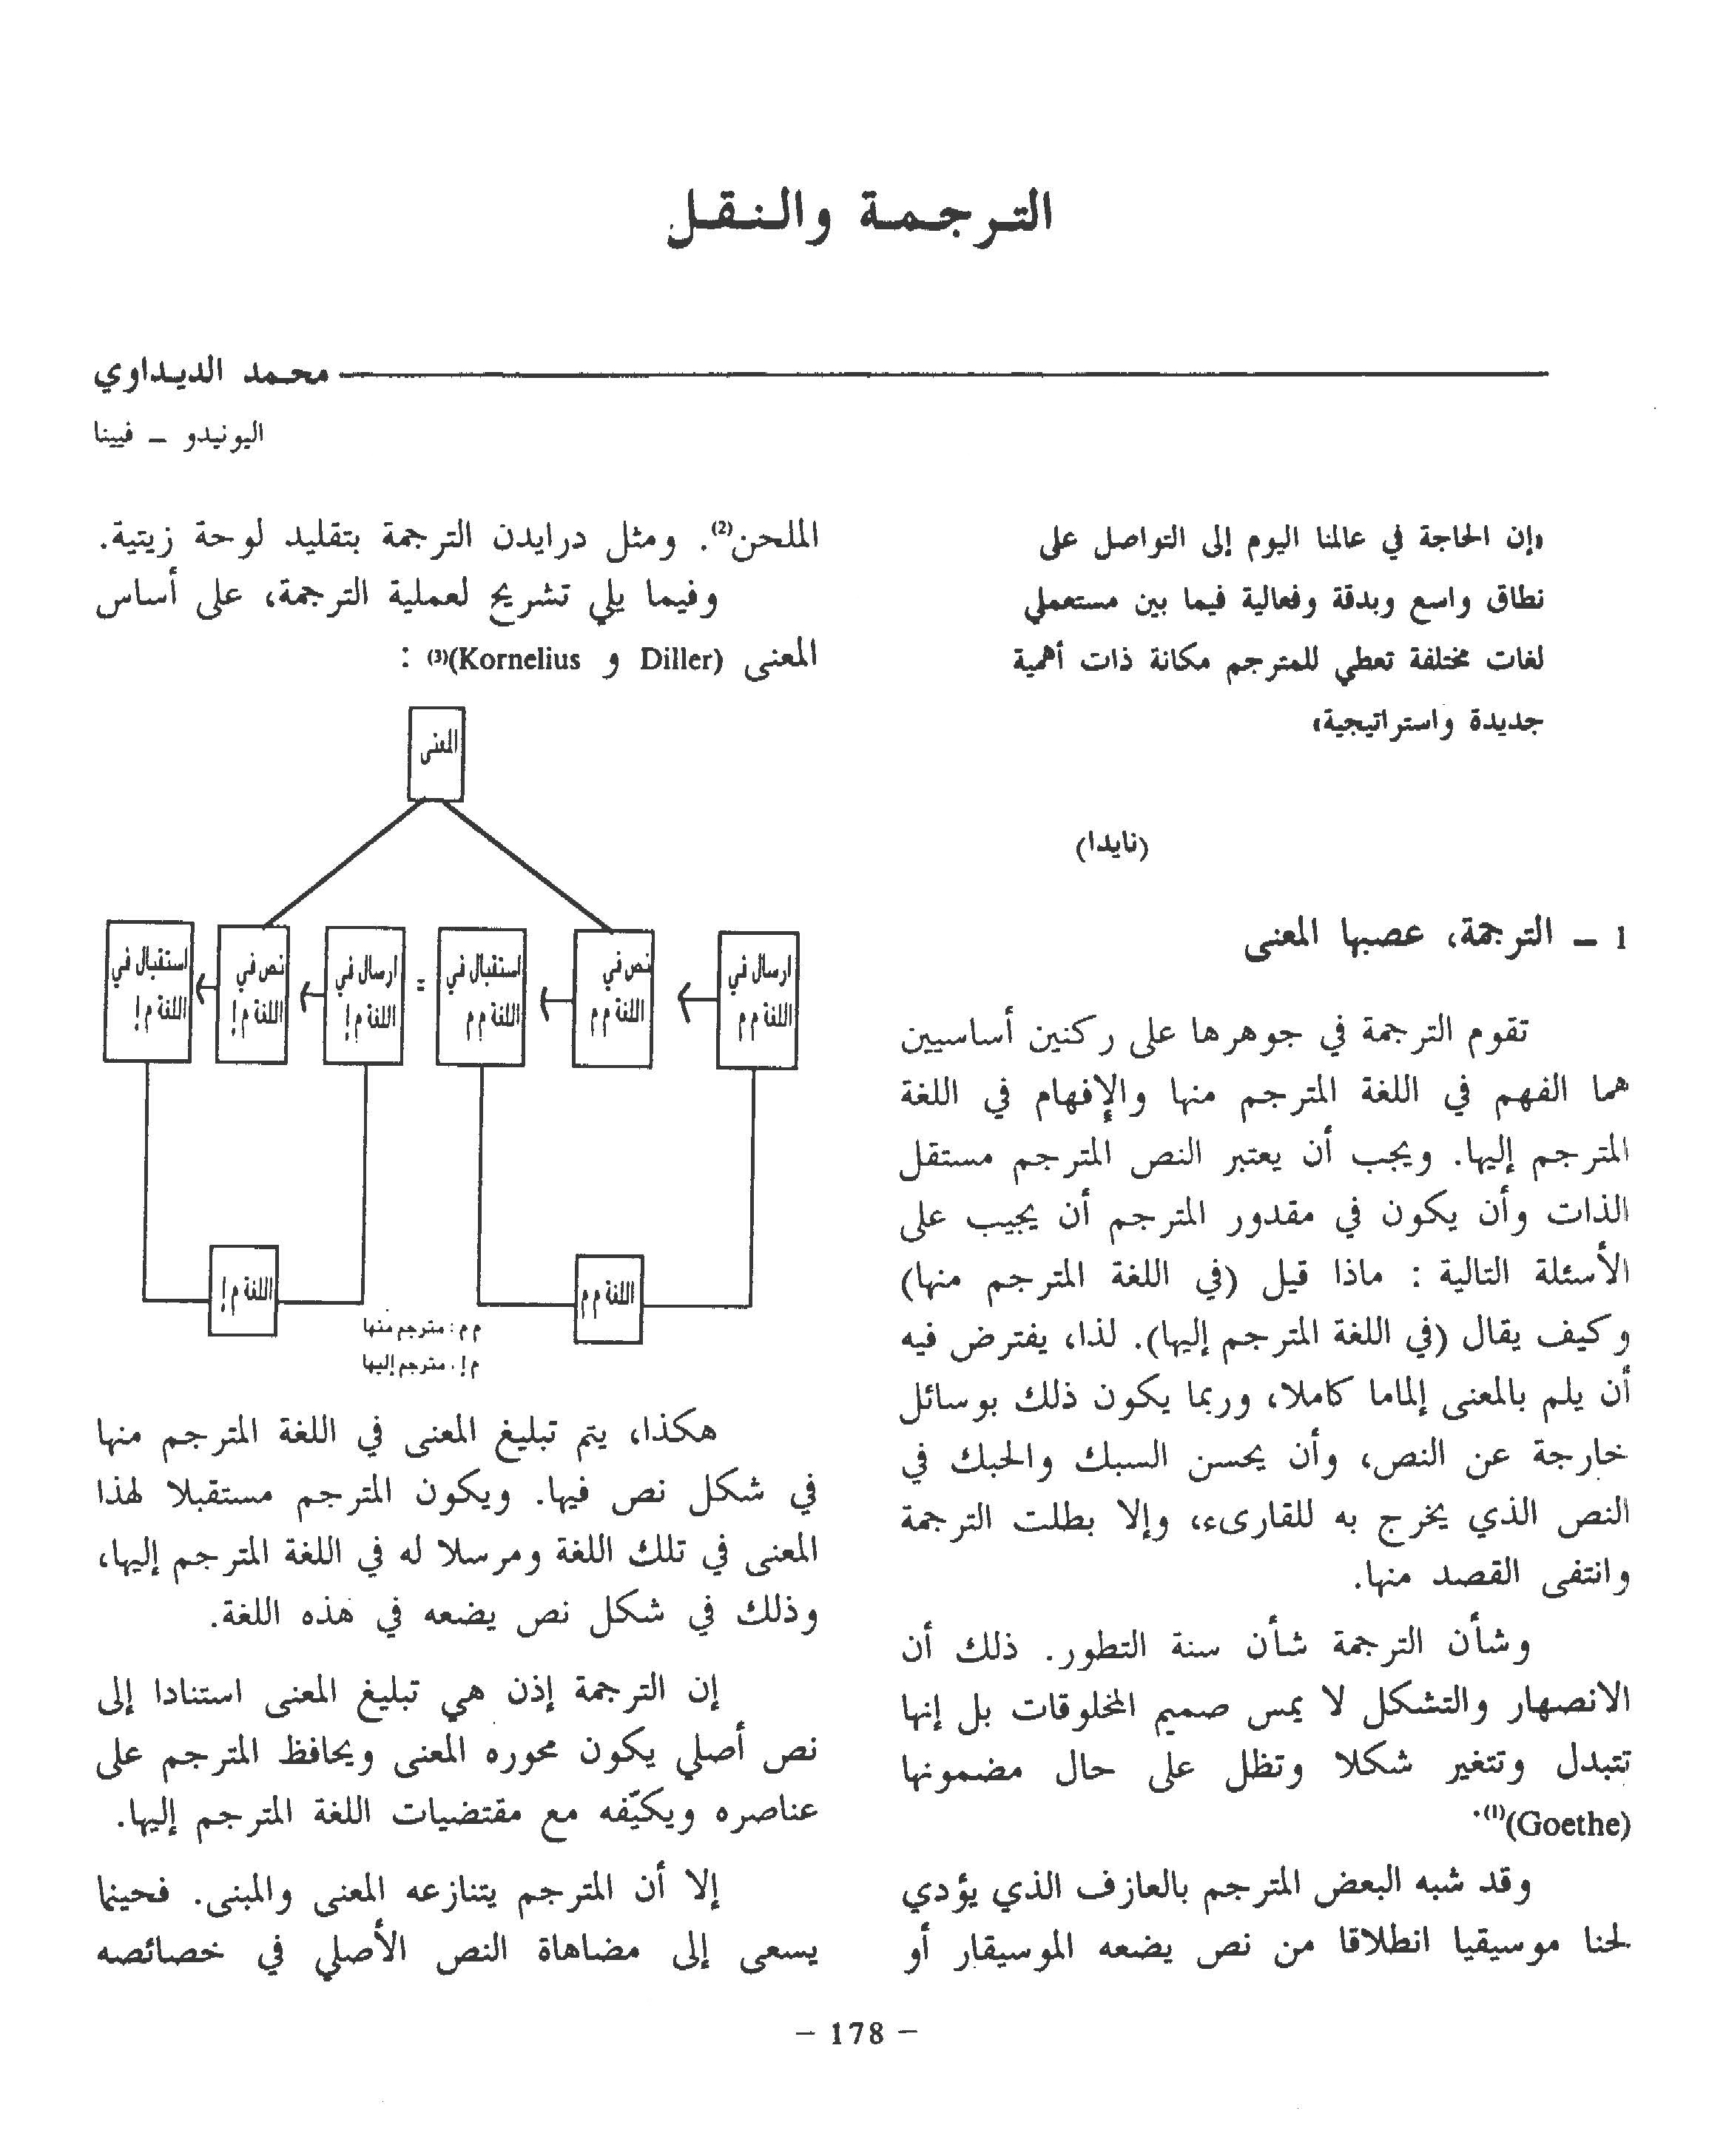 الترجمة والنقل
محمد الديداوي
اليونيدو – فيينا
«إن الحاجة في عالمنا اليوم إلى التواصل على
نطاق واسع وبدقة وفعالية فيما بين مستعملي
لغات مختلفة تعطي للمترجم مكانة ذات أهمية
جديدة واستراتيجية»
(نايدا)
1 – الترجمة، عصبها المعنى
تقوم الترجمة في جوهرها على ركنين أساسيين
هما الفهم في اللغة المترجم منها والإفهام في اللغة
المترجم إليها. ويجب أن يعتبر النص المترجم مستقل
الذات وأن يكون في مقدور المترجم أن يجيب على
الأسئلة التالية : ماذا قيل (في اللغة المترجم منها)
وكيف يقال (في اللغة المترجم إليها). لذا، يفترض فيه
أن يلم بالمعنى إلماما كاملا، وربما يكون ذلك بوسائل
خارجة عن النص، وأن يحسن السبك والحبك في
النص الذي يخرج به للقارىء، وإلا بطلت الترجمة
وانتفى القصد منها.
وشأن الترجمة شأن سنة التطور. ذلك أن
الانصهار والتشكل لا يمس صميم المخلوقات بل إنها
تتبدل وتتغير شكلا وتظل على حال مضمونها
(Goethe)(1).
وقد شبه البعض المترجم بالعازف الذي يؤدي
لحنا موسيقيا انطلاقا من نص يضعه الموسيقار أو
الملحن(2). ومثل درايدن الترجمة بتقليد لوحة زيتية.
وفيما يلي تشريح لعملية الترجمة، على أساس
المعنى (Diller و Kornelius)(3) :
المعنى
ارسال في
اللغة م م
نص في
اللغة م م
استقبال في
اللغة م م
=
ارسال في
اللغة م إ
نص في
اللغة م إ
استقبال في
اللغة م إ
اللغة م م
اللغة م إ
م م : مترجم منها
م إ : مترجم إليها
هكذا، يتم تبليغ المعنى في اللغة المترجم منها
في شكل نص فيها. ويكون المترجم مستقبلا لهذا
المعنى في تلك اللغة ومرسلا له في اللغة المترجم إليها،
وذلك في شكل نص يضعه في هذه اللغة.
إن الترجمة إذن هي تبليغ المعنى استنادا إلى
نص أصلي يكون محوره المعنى ويحافظ المترجم على
عناصره ويكيّفه مع مقتضيات اللغة المترجم إليها.
إلا أن المترجم يتنازعه المعنى والمبنى. فحينما
يسعى إلى مضاهاة النص الأصلي في خصائصه
– 178 –